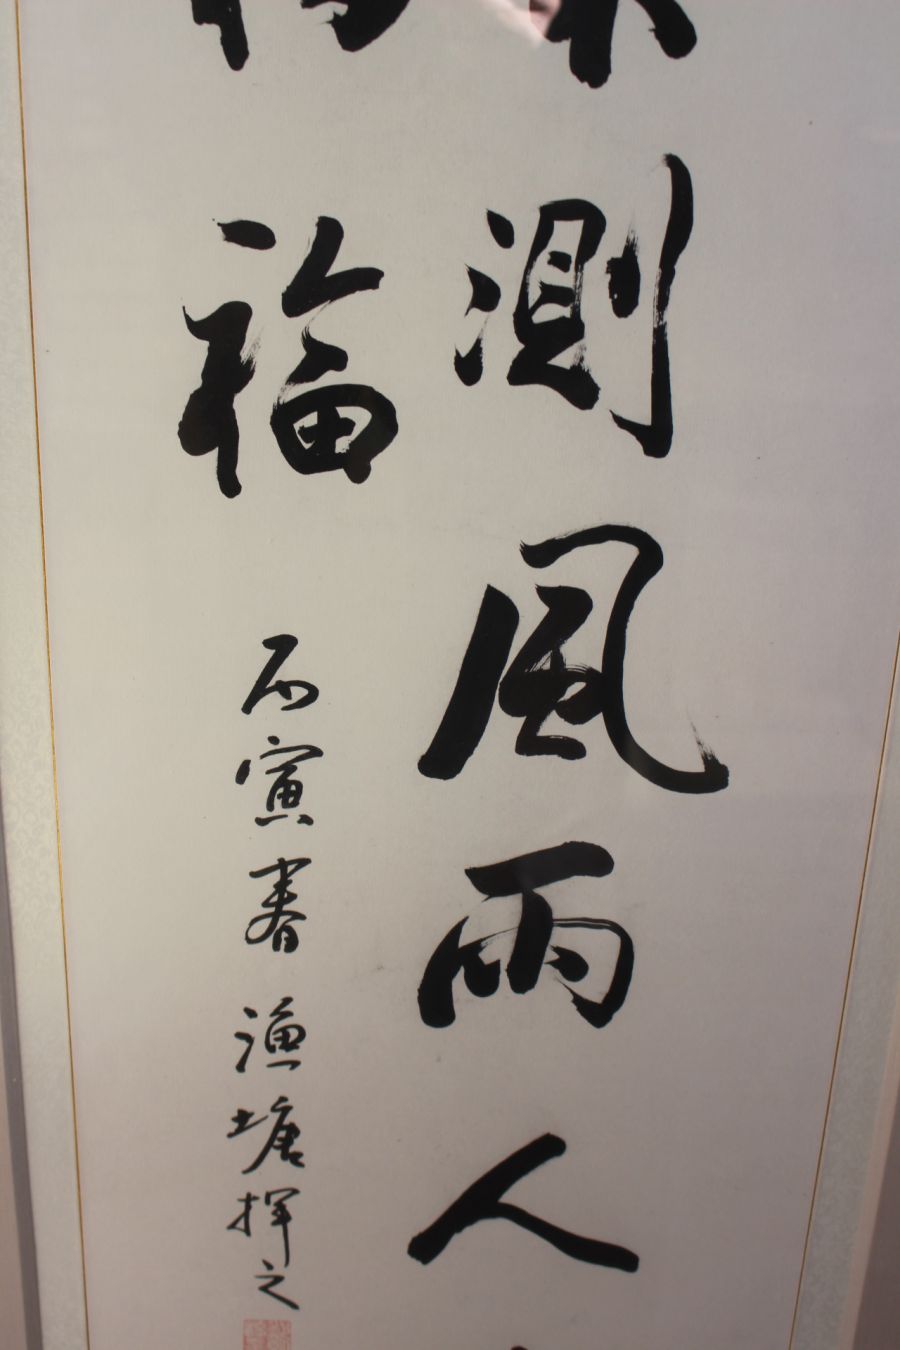 測風雨人
福
丙寅春 漁塘揮之